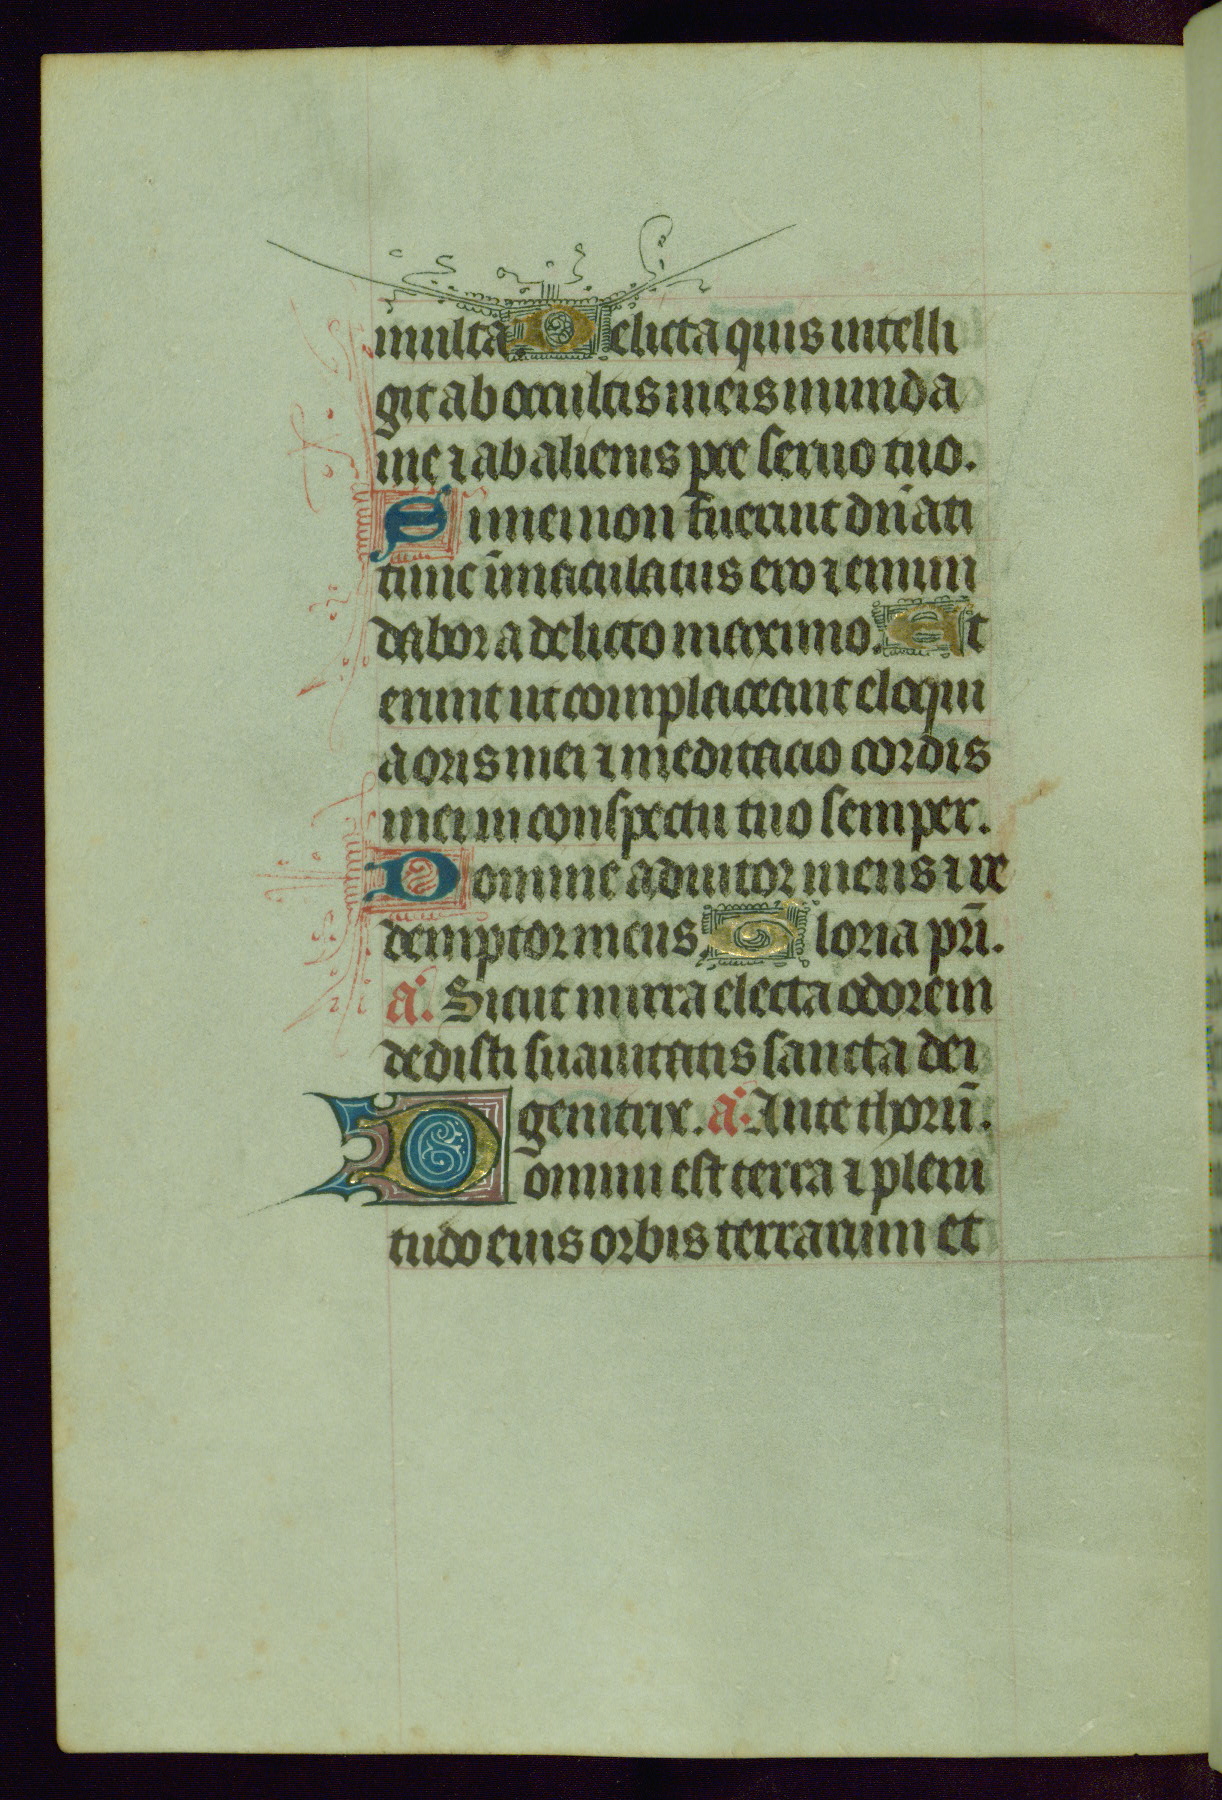 multa Delicta quis intelli
git ab occultis meis munda
me ⁊ ab alienis pce seruo tuo.
Si mei non fuerint dn̄ati
tunc īmaculatus ero ⁊ emun
dabor a delicto maximo. Et
erunt ut complaceant eloqui
a oris mei ⁊ meditacio cordis
mei in conspectu tuo semper.
Domine adiutor meus ⁊ re
demptor meus, Gloria pr̄i.
a. Sicut mirra electa odorem
dedisti suauitatis sancta dei
genitrix. a. Ante thorū.
Domini est terra ⁊ pleni
tudo eius orbis terrarum et